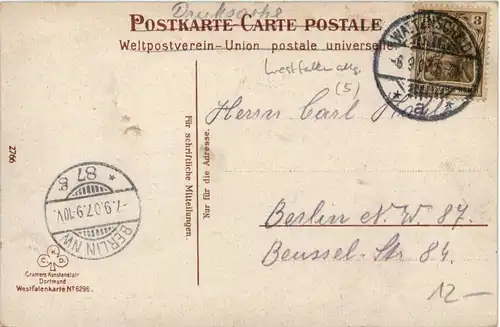 Drucksache
POSTKARTE-CARTE POSTALE
Weltpostverein-Union postale universelle
WATTENSCHEID
a
3
Westfalen allg.
(5)
Herrn Carl
Für schriftliche Mitteilungen.
Nur für die Adresse.
2766
BERLIN NW
-7.9.07.9-10V.
* 87 g
Berlin N.W. 87.
Beussel-Str 84.
12-
C K D
Cramers Kunstanstalt
Dortmund
Westfalenkarte Nº 6296.